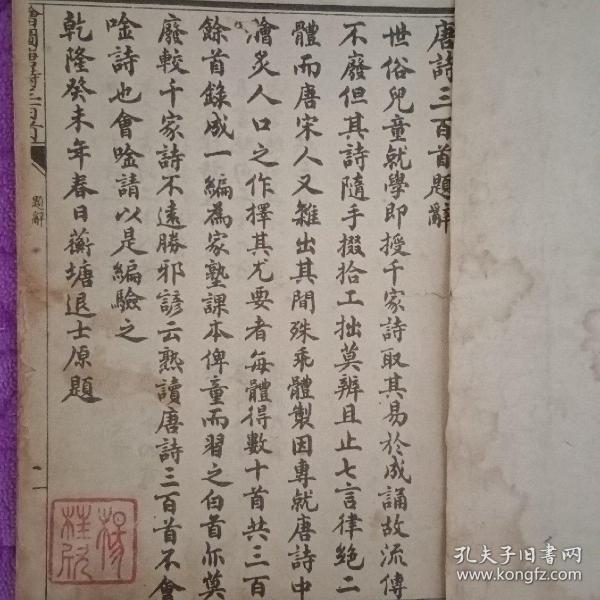 唐詩三百首題辭
世俗兒童就學即授千家詩取其易於成誦故流傳
不廢但其詩隨手掇拾工拙莫辨且止七言律絕二
體而唐宋人又雜出其間殊乖體製因專就唐詩中
膾炙人口之作擇其尤要者每體得數十首共三百
餘首錄成一編為家塾課本俾童而習之白首亦莫
廢較千家詩不遠勝邪諺云熟讀唐詩三百首不會
唫詩也會唫請以是編驗之
乾隆癸未年春日蘅塘退士原題
繪圖唐詩三百首
題辭
一
楊
孔夫子旧书网
www.kongfz.com